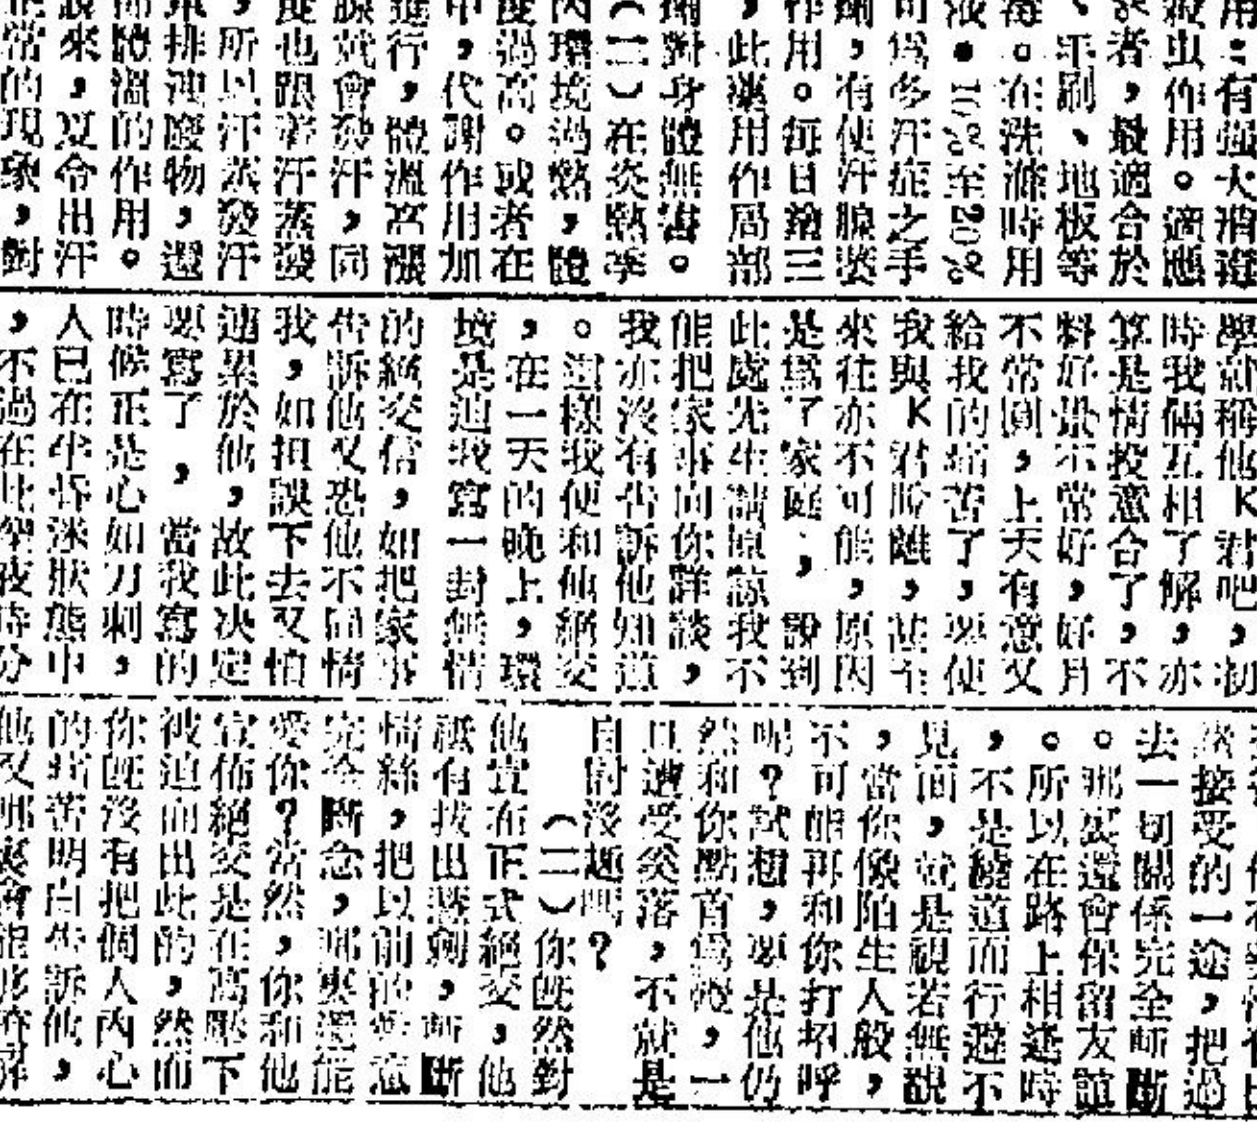 用：有強大消毒
殺虫作用。適應
者，最適合於
、牙刷、地板等
毒。在洗滌時用
液。10%至20%
可爲多汗症之手
劑，有使汗腺
作用。每日擦三
，此藥用作局部
劑對身體無害。
（二）在炎熱季
內環境過熱，體
度過高。或者在
中，代謝作用加
進行，體溫高漲
腺就會發汗，同
度也跟著汗蒸發
，所以汗蒸發汗
排洩廢物，還
節體溫的作用。
來，夏令出汗
常的現象，對
學就稱他K君吧，初
時我倆互相了解，亦
算是情投意合了，不
料好景不常好，好月
不常圓，上天有意又
給我的痛苦了，要使
我與K君脫離，甚至
來往亦不可能，原因
是爲了家庭，說到
此處先生請原諒我不
能把家事向你詳談，
我亦沒有告訴他知道
。這樣我便和他絕交
，在一天的晚上，環
境是迫我寫一封無情
的絕交信，如把家事
告訴他又恐他不同情
我，如担誤下去又怕
連累於他，故此決定
要寫了，當我寫的
時候正是心如刀刺，
人已在半昏迷狀態中
，不過在此深夜時分
接受的一途，把過
去一切關係完全斬斷
。那裏還會保留友誼
。所以在路上相逢時
，不是繞道而行避不
見面，就是視若無覩
，當你像陌生人般，
不可能再和你打招呼
呢？試想，要是他仍
然和你點首爲禮，一
且遭受奚落，不就是
自討沒趣嗎？
（二）你既然對
他宣布正式絕交，他
祇有拔出慧劍，斬斷
情絲，把以前的愛意
完全斷念，那裏還能
愛你？當然，你和他
宣佈絕交是在高壓下
被迫而出此的，然而
你既沒有把個人內心
的痛苦明白告訴他，
他又那裏會能夠諒解